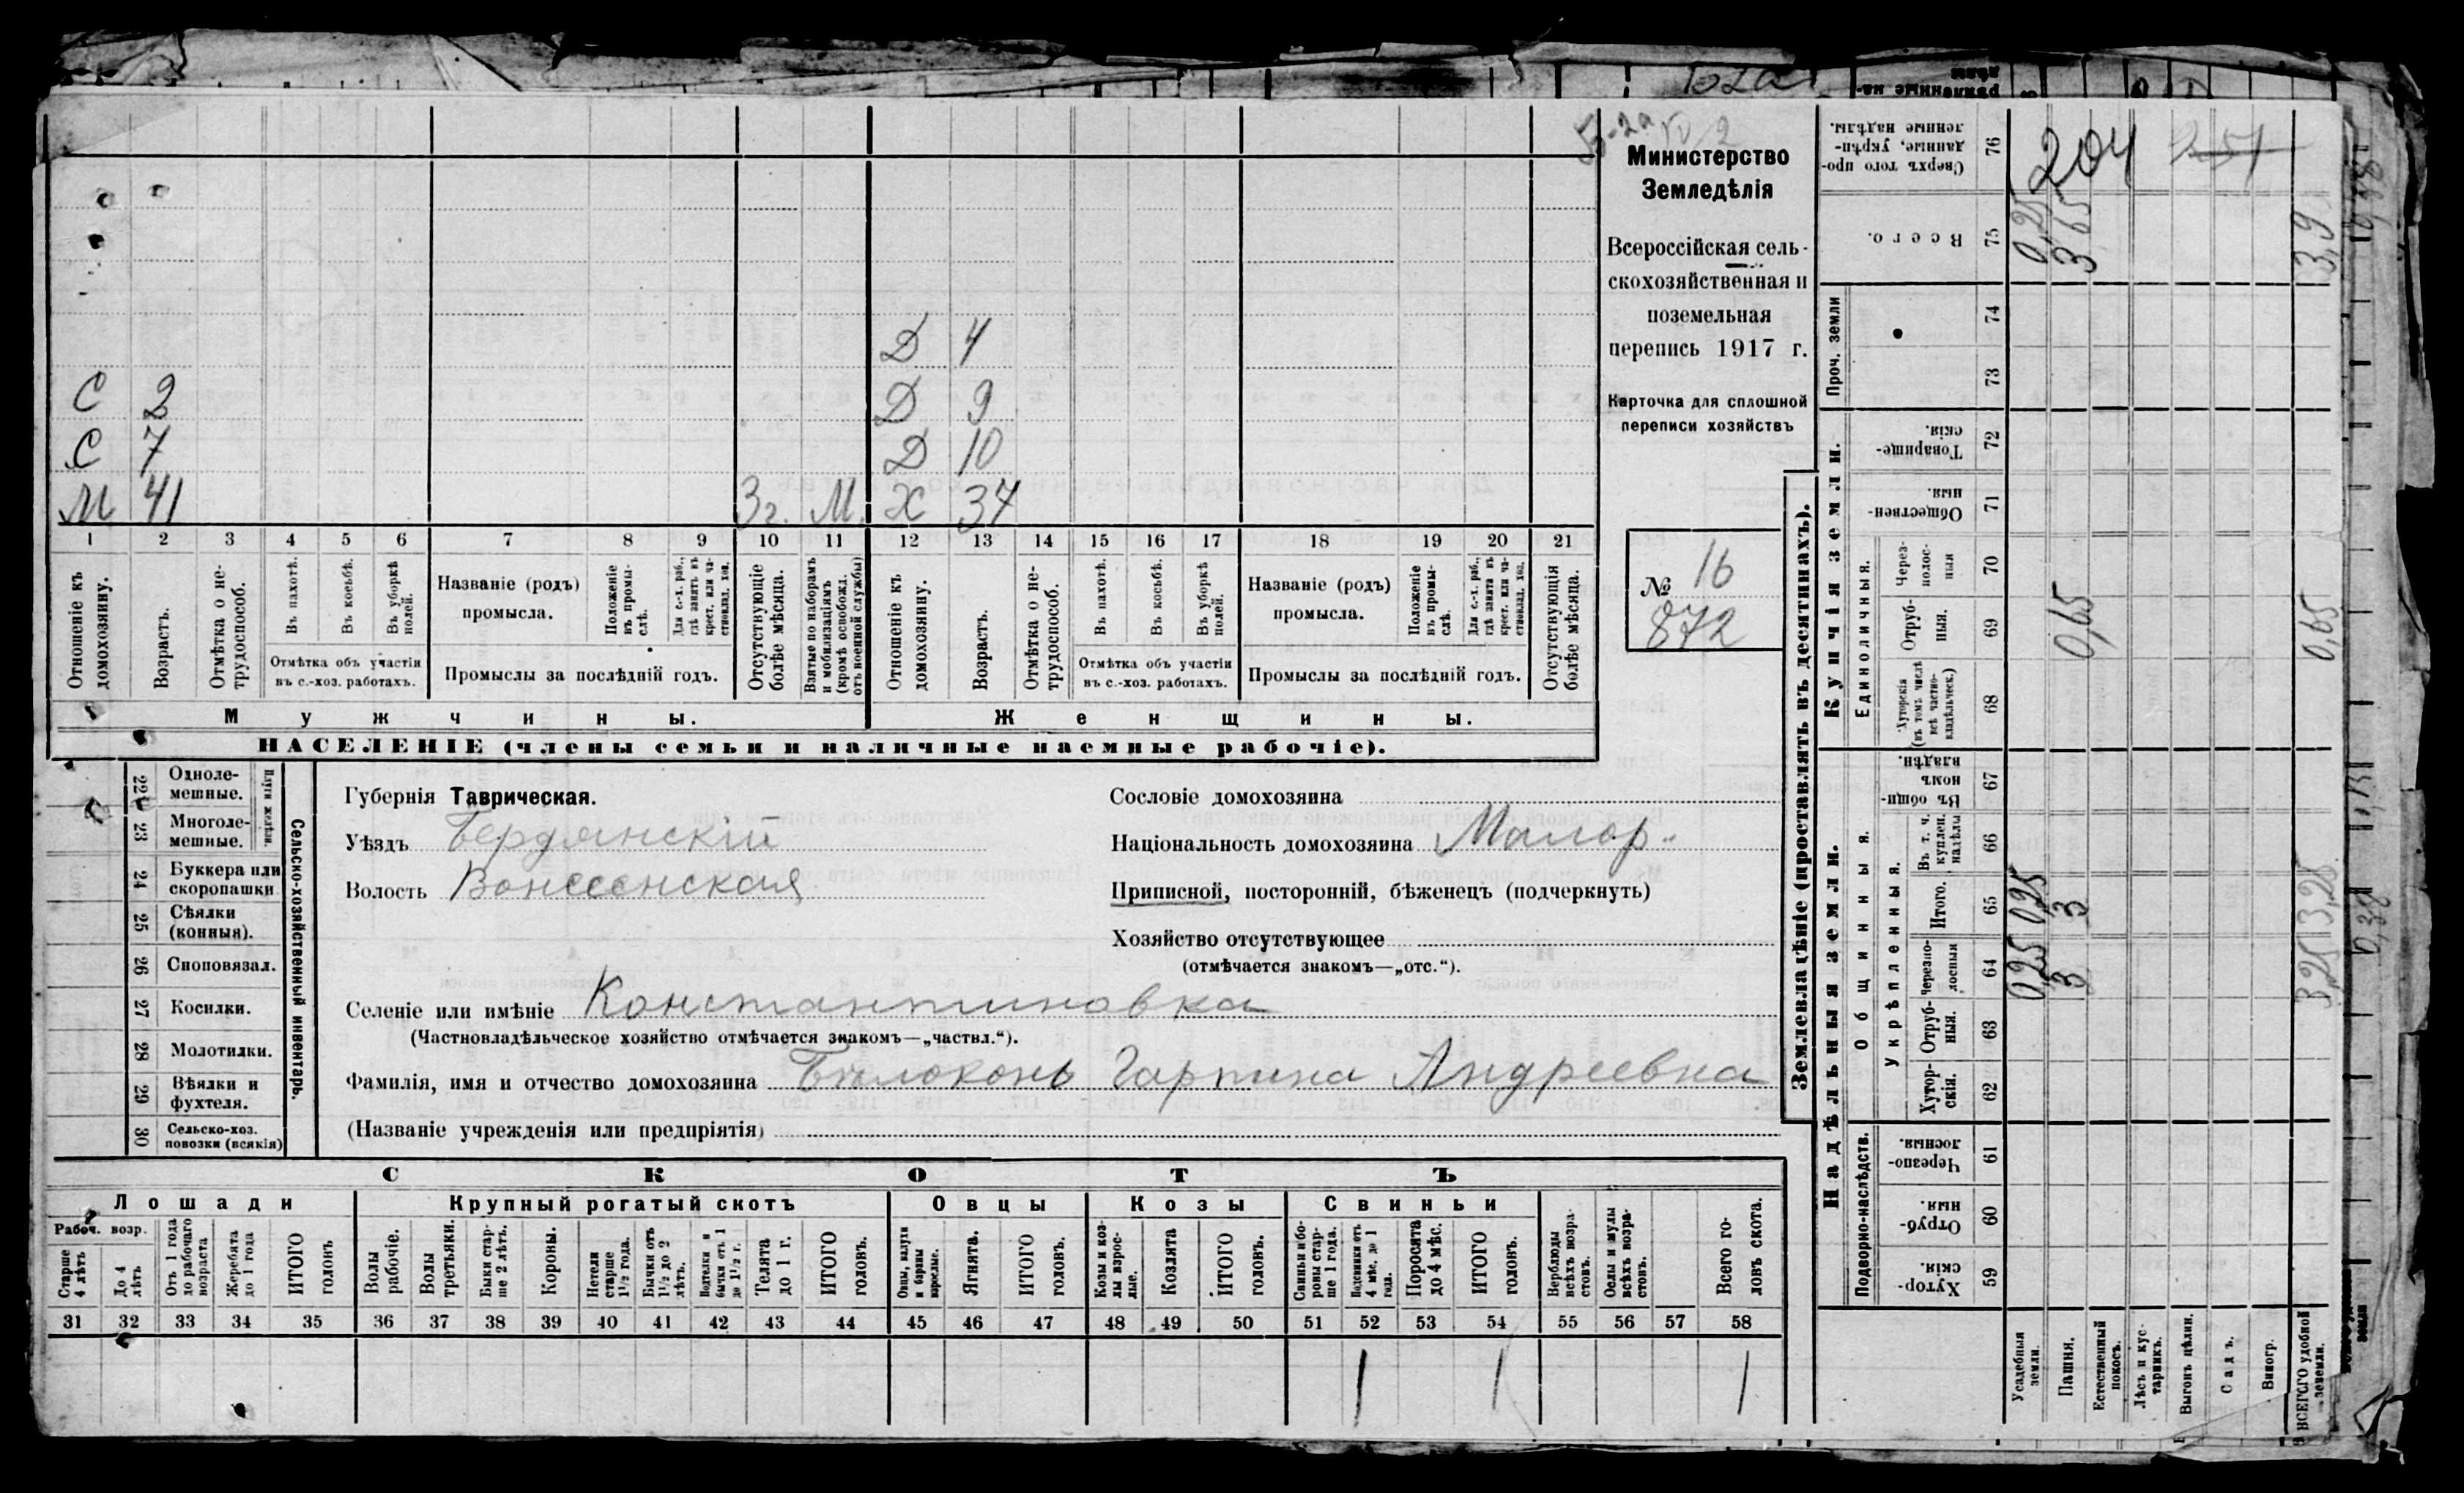 204
251
Министерство
Земледѣлія
Всероссійская сель-
скохозяйственная и
поземельная
перепись 1917 г.
Карточка для сплошной
переписи хозяйствъ
№ 16
872
Д 4
С 2 Д 9
С 7 Д 10
М 41 3 г. М. Х 34
1 2 3 4 5 6 7 8 9 10 11 12 13 14 15 16 17 18 19 20 21
Отношеніе къ домохозяину.
Возрастъ.
Отмѣтка о не-трудоспособ.
Въ пахотѣ.
Въ косьбѣ.
Въ уборкѣ полей.
Отмѣтка объ участіи
въ с.-хоз. работахъ.
Названіе (родъ)
промысла.
Положеніе въ промы-слѣ.
Для с.-х. раб., гдѣ занятъ въ крест. или ча-стновлад. хоз.
Промыслы за послѣдній годъ.
Отсутствующіе болѣе мѣсяца.
Взятые по наборамъ и мобилизаціямъ (кромѣ освобожд. отъ военной службы)
Отношеніе къ домохозяину.
Возрастъ.
Отмѣтка о не-трудоспособ.
Въ пахотѣ.
Въ косьбѣ.
Въ уборкѣ полей.
Отмѣтка объ участіи
въ с.-хоз. работахъ.
Названіе (родъ)
промысла.
Положеніе въ промы-слѣ.
Для с.-х. раб., гдѣ занята въ крест. или ча-стновлад. хоз.
Промыслы за послѣдній годъ.
Отсутствующія болѣе мѣсяца.
Мужчины.
Женщины.
НАСЕЛЕНІЕ (члены семьи и наличные наемные рабочіе).
22 Одноле-мешные.
23 Многоле-мешные.
Плуги желѣзн.
24 Буккера или скоропашки
25 Сѣялки (конныя).
26 Сноповязал.
27 Косилки.
28 Молотилки.
29 Вѣялки и фухтеля.
30 Сельско-хоз. повозки (всякія)
Сельско-хозяйственный инвентарь.
Губернія Таврическая.
Уѣздъ Бердянскій
Волость Вонесенская
Сословіе домохозяина
Національность домохозяина Малор.
Приписной, посторонній, бѣженецъ (подчеркнуть)
Хозяйство отсутствующее
(отмѣчается знакомъ—„отс.“).
Селеніе или имѣніе Константиновка
(Частновладѣльческое хозяйство отмѣчается знакомъ—„частвл.“).
Фамилія, имя и отчество домохозяина Бѣлоконь Гарпина Андреевна
(Названіе учрежденія или предпріятія)
СКОТЪ
Лошади
Крупный рогатый скотъ
Овцы
Козы
Свиньи
Рабоч. возр.
Старше 4 лѣтъ
До 4 лѣтъ
Отъ 1 года до рабочаго возраста
Жеребята до 1 года
ИТОГО головъ
Волы рабочіе.
Волы третьяки.
Быки стар-ше 2 лѣтъ.
Коровы.
Нетели старше 1½ года.
Бычки отъ 1½ до 2 лѣтъ.
Подтелки и бычки отъ 1 до 1½ г.
Телята до 1 г.
ИТОГО головъ.
Овцы, валухи и бараны взрослые.
Ягнята.
ИТОГО головъ.
Козы и коз-лы взрос-лые.
Козлята
ИТОГО головъ.
Свиньи и бо-ровы стар-ше 1 года.
Подсвинки отъ 4 мѣс. до 1 года.
Поросята до 4 мѣс.
ИТОГО головъ.
Верблюды всѣхъ возра-стовъ.
Ослы и мулы всѣхъ возра-стовъ.
Всего го-ловъ скота.
31 32 33 34 35 36 37 38 39 40 41 42 43 44 45 46 47 48 49 50 51 52 53 54 55 56 57 58
1 1 1
Землевладѣніе (проставлять въ десятинахъ).
Надѣльныя земли.
Купчія земли.
Проч. земли
Подворно-наслѣдств.
Общинныя.
Укрѣпленныя.
Единоличныя.
Хутор-скія. 59
Отруб-ныя. 60
Черезпо-лосныя. 61
Хутор-скія. 62
Отруб-ныя. 63
Черезпо-лосныя 64
Итого. 65
Въ т. ч. куплен. надѣлы 66
Въ общи-номъ владѣн. 67
Хуторскія (въ томъ числѣ всѣ частно-владѣльческ.) 68
Отруб-ныя. 69
Через-полос-ныя 70
Обществен-ныя. 71
Товарище-скія. 72
73
74
Всего. 75
Сверхъ того про-данные, укрѣп-ленные надѣлы. 76
Усадебныя земли. 0,25 0,25 0,25
Пашня. 3 3 0,65 3,65
Естественный покосъ.
Лѣсъ и кус-тарникъ.
Выгонъ цѣлин.
Садъ.
Виногр.
ВСЕГО удобной земли. 3,25 3,25 0,65 3,9